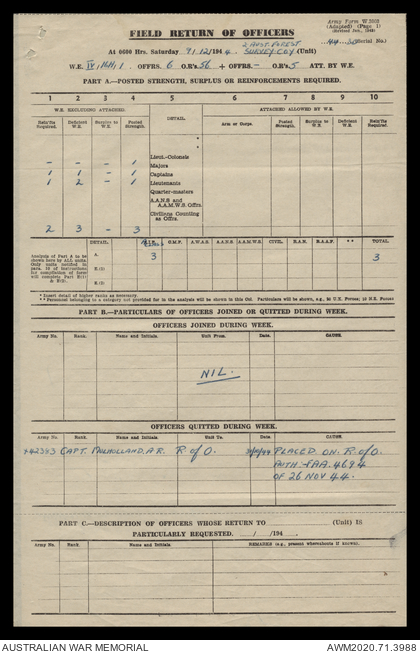 Army Form W.3008
(Adapted) (Page 1)
(Revised Jan., 1943)
FIELD RETURN OF OFFICERS
(Serial No.)
At 0600 Hrs. Saturday 9/12/1944 2 AUST. FOREST SURVEY COY (Unit)
W.E. OFFRS. 6 O.R's 56 + OFFRS - O.R's 5 ATT. BY W.E.
PART A.—POSTED STRENGTH, SURPLUS OR REINFORCEMENTS REQUIRED.
1 2 3 4 5 6 7 8 9 10
W.E. EXCLUDING ATTACHED. DETAIL. ATTACHED ALLOWED BY W.E.
Rfts Required. Deficient W.E. Surplus to W.E. Posted Strength. Arm or Corps. Posted Strength. Surplus to W.E. Deficient W.E. Rfts Required
*
*
Lieut.-Colonels
- - - 1 Majors
1 1 - 1 Captains
1 2 - 1 Lieutenants
Quarter-masters
A.A.N.S. and A.A.M.W.S. Offrs.
Civilians Counting as Offrs.
2 3 - 3
DETAIL. A.I.F. C.M.F. A.W.A.S. A.A.N.S. A.A.M.W.S. CIVIL R.A.N. R.A.A.F. ** TOTAL
Analysis of Part A to be shown here by ALL units. Only units notified in para. of instructions for compilation of form will complete
A. 3 3
* Insert detail of higher ranks as necessary.
PART B.—PARTICULARS OF OFFICERS JOINED OR QUITTED DURING WEEK.
OFFICERS JOINED DURING WEEK.
Army No. Rank. Name and Initials. Unit From. Date. CAUSE.
NIL.
OFFICERS QUITTED DURING WEEK.
Army No. Rank. Name and Initials. Unit To. Date. CAUSE.
CAPT. MULHOLLAND. A.R. R of O. PLACED ON R of O.
AUTH 4694
OF 26 NOV 44.
PART C.—DESCRIPTION OF OFFICERS WHOSE RETURN TO (Unit) IS
PARTICULARLY REQUESTED. / /194 .
Army No. Rank. Name and Initials. REMARKS (e.g., present whereabouts if known).
AUSTRALIAN WAR MEMORIAL AWM2020.71.3988